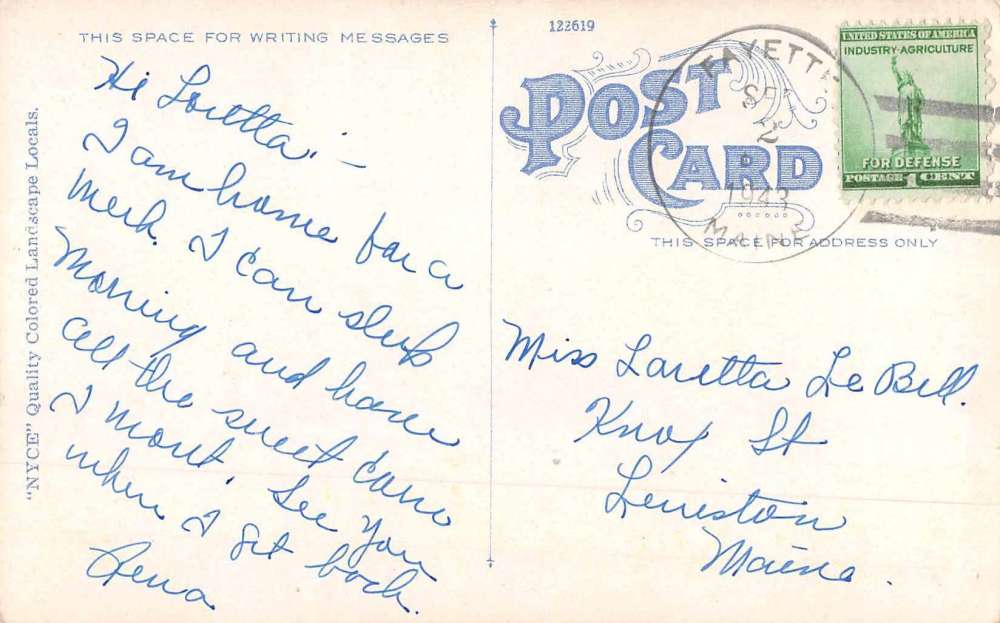 THIS SPACE FOR WRITING MESSAGES
Hi Loretta:-
I am home for a
week. I can sleep
morning and have
all the sweet corn
I want. See you
when I get back.
Rena
"NYCE" Quality Colored Landscape Locals.
122619
POST
CARD
THIS SPACE FOR ADDRESS ONLY
FAYETTE
SEP
2
1943
MAINE
UNITED STATES OF AMERICA
INDUSTRY·AGRICULTURE
FOR DEFENSE
POSTAGE 1 CENT
Miss Loretta Le Bell.
Knox St
Lewiston
Maine.